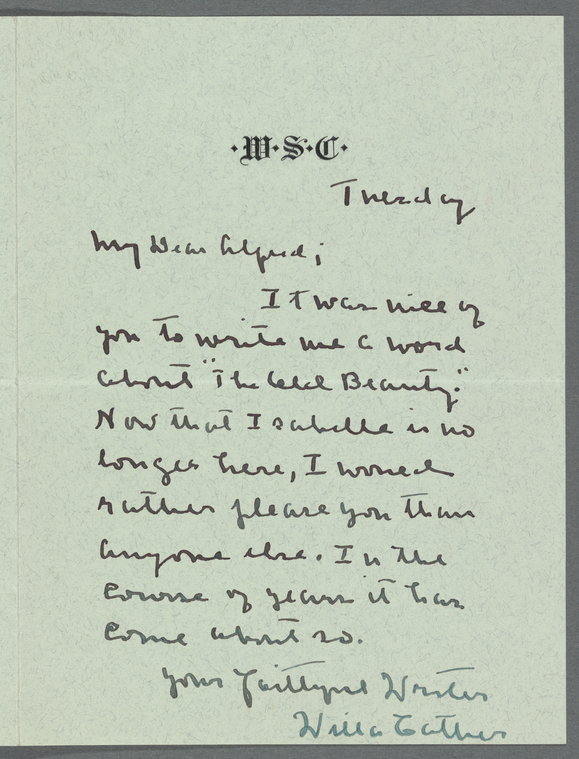 ·W·S·C·
Tuesday
My Dear Alfred;
It was nice of
you to write me a word
about "The Old Beauty."
Now that Isabelle is no
longer here, I would
rather please you than
anyone else. In the
course of years it has
come about so.
Your faithful Writer
Willa Cather